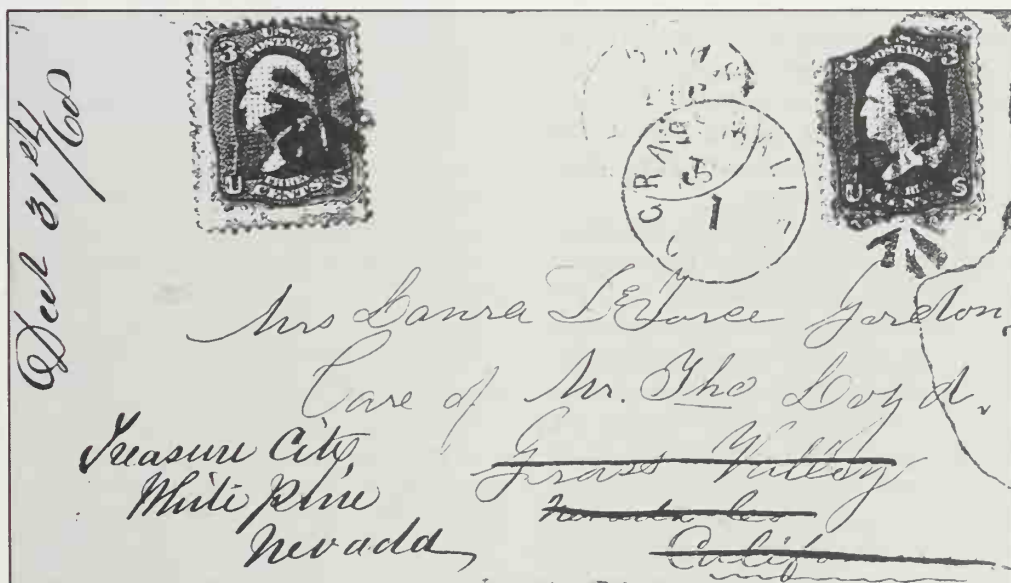 Decr 31st/68
U.S.
3 POSTAGE 3
THREE
CENTS
U S
3 POSTAGE 3
U S
CENTS
1
Mrs Laura DeForce Gordon.
Care of Mr. Tho Loyd.
Grass Valley
Nevada Co
Califa
Treasure City
White Pine
Nevada